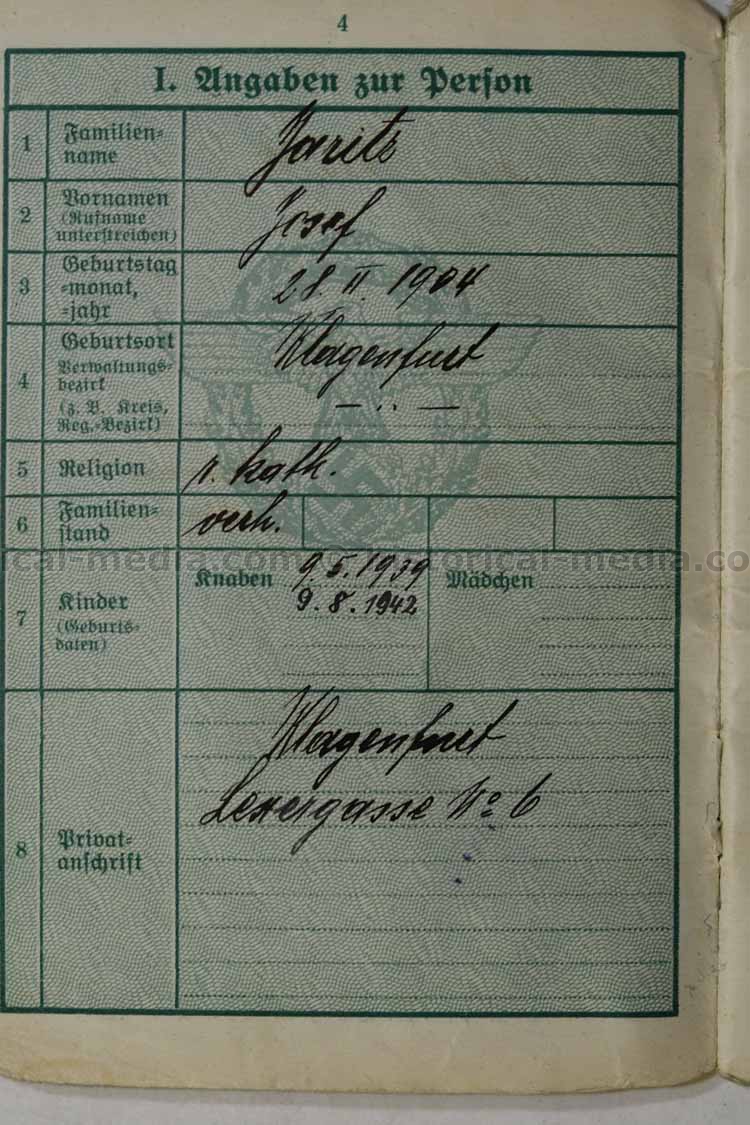 4
I. Angaben zur Person
1 Familien-
name
Jaritz
2 Vornamen
(Rufname
unterstreichen)
Josef
3 Geburtstag
-monat,
-jahr
28. II. 1904
4 Geburtsort
Verwaltungs-
bezirk
(z. B. Kreis,
Reg.-Bezirk)
Klagenfurt
— .. —
5 Religion
r. kath.
6 Familien-
stand
verh.
7 Kinder
(Geburts-
daten)
Knaben 9.5.1939
9.8.1942
Mädchen
8 Privat-
anschrift
Klagenfurt
Lexergasse No 6